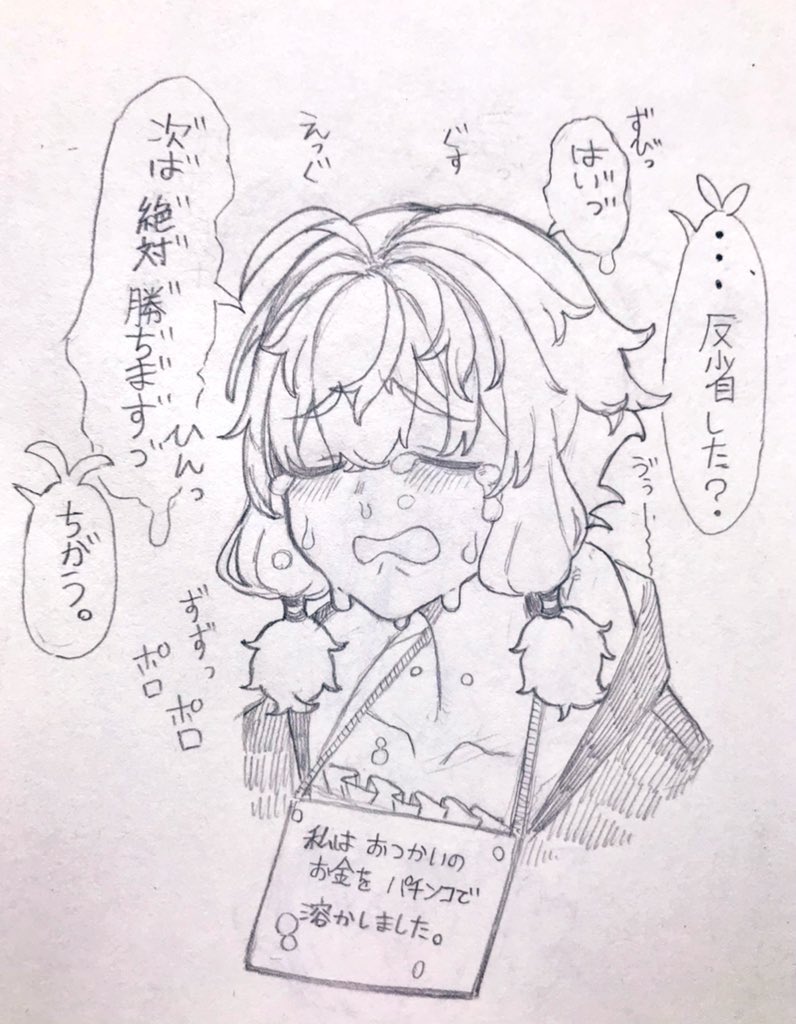 …反省した?
ずびっ
はい゛っ
ぐす
えっぐ
次ば゛
絶゛対゛
勝゛ち゛ま゛ず゛っ
ひんっ
ちがう。
ゔぅー
ずずっ
ポロ
ポロ
私は おつかいの
お金を パチンコで
溶かしました。